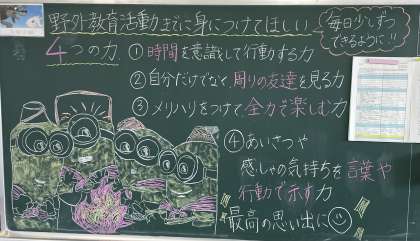 野外教育活動までに身につけてほしい
毎日少しずつ
できるように!!
4つの力
①時間を意識して行動する力
②自分だけでなく、周りの友達を見る力
③メリハリをつけて、全力で楽しむ力
④あいさつや
感しゃの気持ちを言葉や
行動で示す力
最高の思い出に